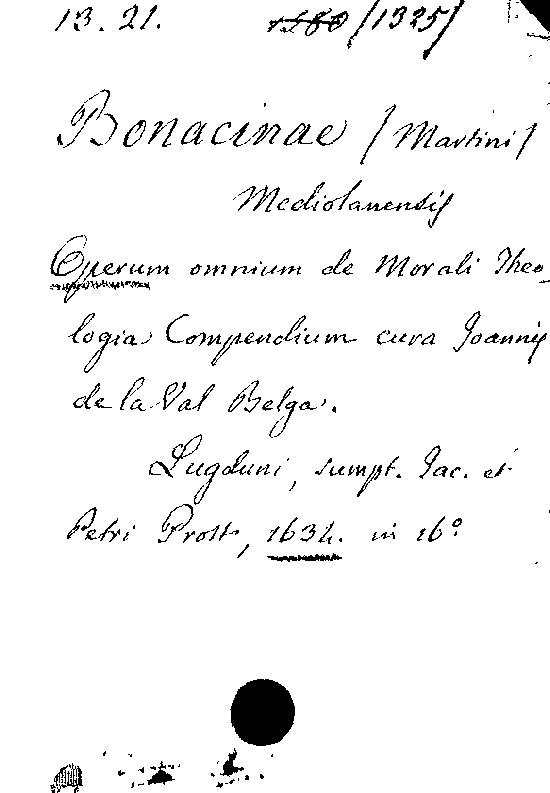 13. 21. 1580 /1325/
Bonacinae /Martini/
Mediolanensis
Operum omnium de Morali Theo-
logia Compendium cura Joannis
de la Val Belga.
Lugduni, sumpt. Jac. et
Petri Prost, 1634. in 16°